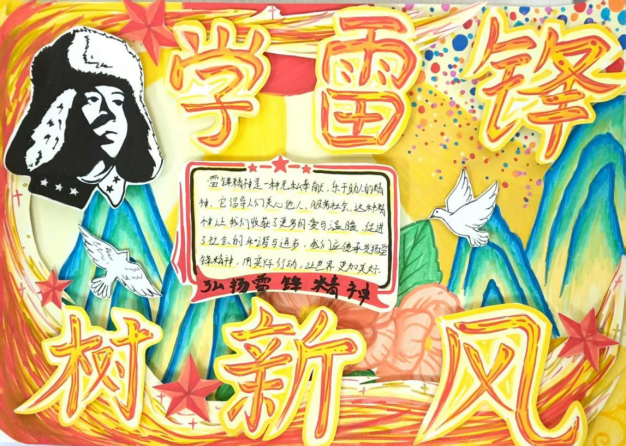 学雷锋
雷锋精神是一种无私奉献、乐于助人的精
神,它倡导人们关心他人,服务社会,这种精
神让我们收获了更多的爱与温暖,促进
了社会的和谐与进步,我们应传承发扬雷
锋精神,用实际行动,让世界更加美好.
弘扬雷锋精神
树新风